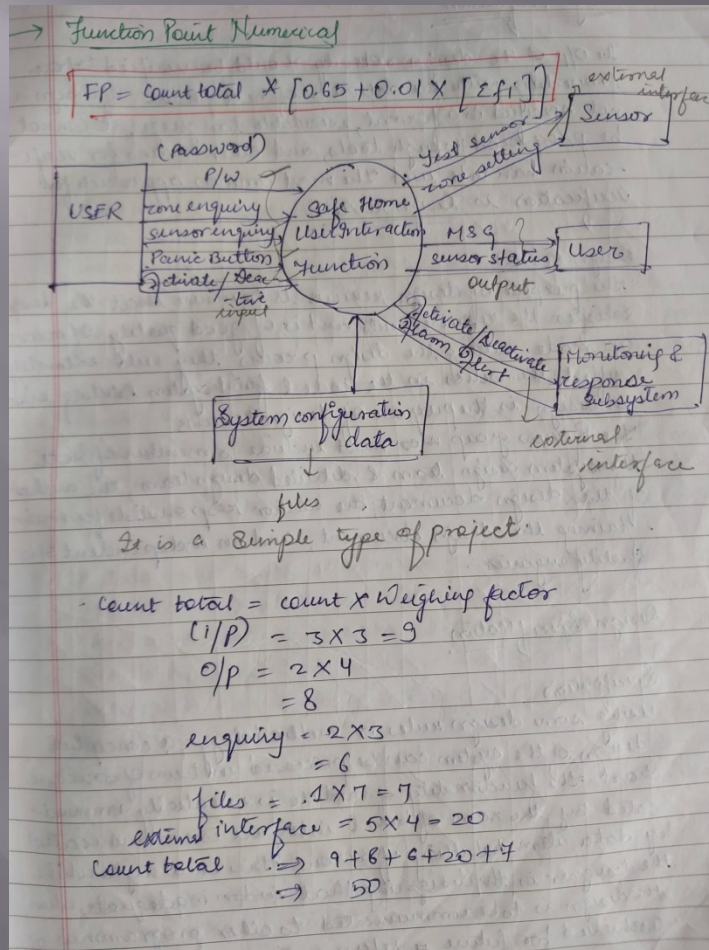 → Function Point Numerical
FP = Count total × [0.65 + 0.01 × [Σfi]]
external interface
Sensor
(Password)
P/W
USER
zone enquiry
sensor enquiry
Panic Button
Activate/Deac
-tive
input
Safe Home
User Interaction
Function
Test sensor
zone setting
MSG
sensor status
User
output
Activate/Deactivate
Alarm Alert
Monitoring &
response
Subsystem
external
interface
System configuration
data
files
It is a Simple type of project.
Count total = count × Weighing factor
(i/p) = 3×3 = 9
o/p = 2×4
= 8
enquiry = 2×3
= 6
files = 1×7 = 7
external interface = 5×4 = 20
Count total ⇒ 9+8+6+20+7
⇒ 50